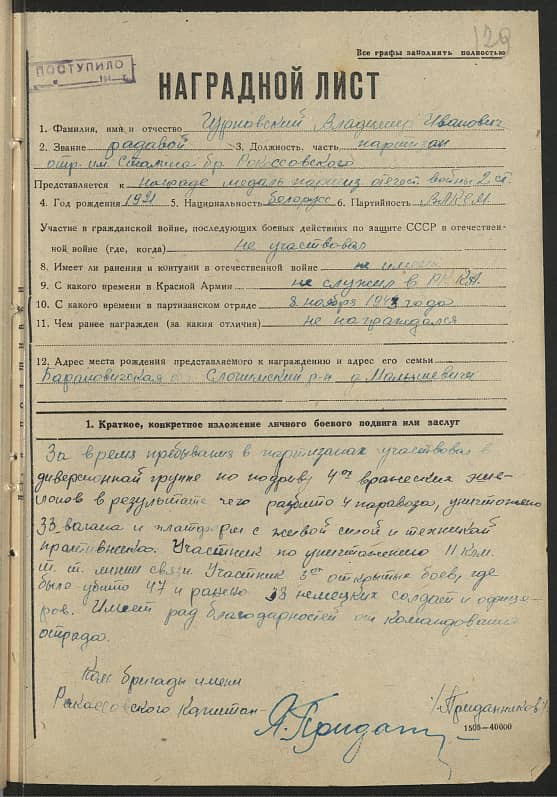 129
Все графы заполнять полностью
ПОСТУПИЛО
НАГРАДНОЙ ЛИСТ
1. Фамилия, имя и отчество Цурновский Владимир Иванович
2. Звание радавой 3. Должность, часть партизан
отр. им. Сталина бр. Рокоссовского
Представляется к награде медаль партиз отечест войны 2 ст.
4. Год рождения 1921 5. Национальность белорус 6. Партийность ВЛКСМ
Участие в гражданской войне, последующих боевых действиях по защите СССР в отечествен-
ной войне (где, когда) не участвовал
8. Имеет ли ранения и контузии в отечественной войне не имеет
9. С какого времени в Красной Армии не служил в РККА
10. С какого времени в партизанском отряде 8 ноября 1943 года
11. Чем ранее награжден (за какия отличия) не награждался
12. Адрес места рождения представляемого к награждению и адрес его семьи
Барановичская Слонимский р-н д. Малышевичи
1. Краткое, конкретное изложение личного боевого подвига или заслуг
За время пребывания в партизанах участвовал в
диверсионной группе по подрыву 4ох вражеских эше-
лонов в результате чего разбито 4 паравоза, уничтожено
33 вагана и платформ с живой силой и техникай
противника. Участник по уничтожению 11 клм.
т. т. линии связи. Участник 3ох открытых боев, где
было убито 47 и ранено 33 немецких солдат и офице-
ров. Имеет рад благодарностей от командования
отряда.
Ком бригады имени
Рокассовского Капитан-
/Приданников/
А. Придан
1505—40000